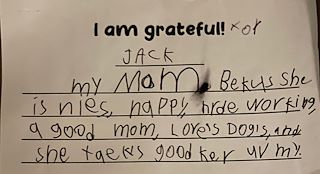 I am grateful! for
JACK
my Mom. Bekus she
is nies, happy, hrde working,
a good mom, Loveis Dogis, and
she taeks good ker uv my.